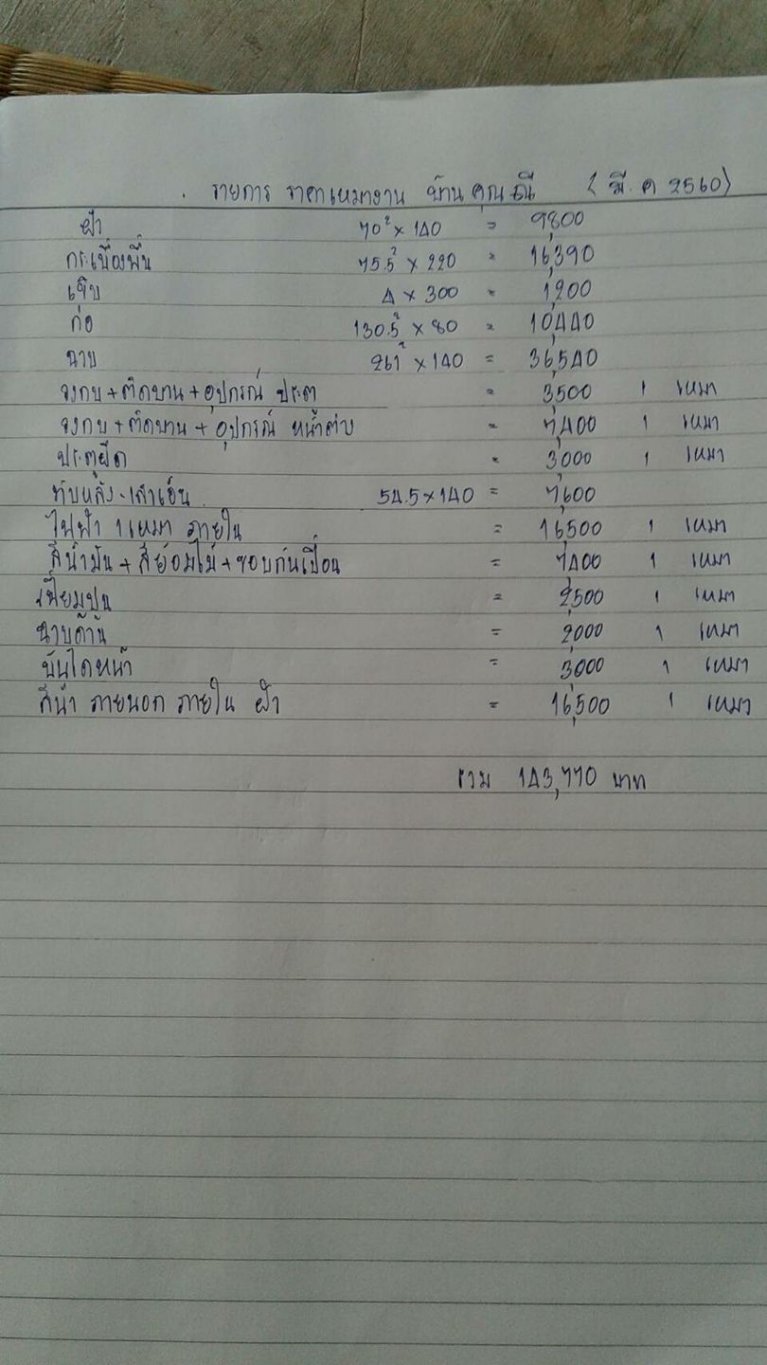 รายการ ราคาเหมางาน บ้านคุณณี (มี.ค 2560)
ฝ้า 70² x 140 = 9,800
กระเบื้องพื้น 75.5² x 220 = 16,390
เจิบ 4 x 300 = 1,200
ก่อ 130.5² x 80 = 10,440
ฉาบ 261² x 140 = 36,540
วงกบ+ติดบาน+อุปกรณ์ ประตู = 3,500 1 เหมา
วงกบ+ติดบาน+อุปกรณ์ หน้าต่าง = 7,400 1 เหมา
ประตูยืด = 3,000 1 เหมา
ทับหลัง-เสาเอ็น 54.5x140 = 7,600
ไฟฟ้า 1 เหมา ภายใน = 16,500 1 เหมา
สีน้ำมัน+สีย้อมไม้+ขอบกันเปื้อน = 7,400 1 เหมา
เฟี้ยมปูน = 2,500 1 เหมา
ฉาบด้าน = 2,000 1 เหมา
บันไดหน้า = 3,000 1 เหมา
สีน้ำ ภายนอก ภายใน ฝ้า = 16,500 1 เหมา
รวม 143,770 บาท